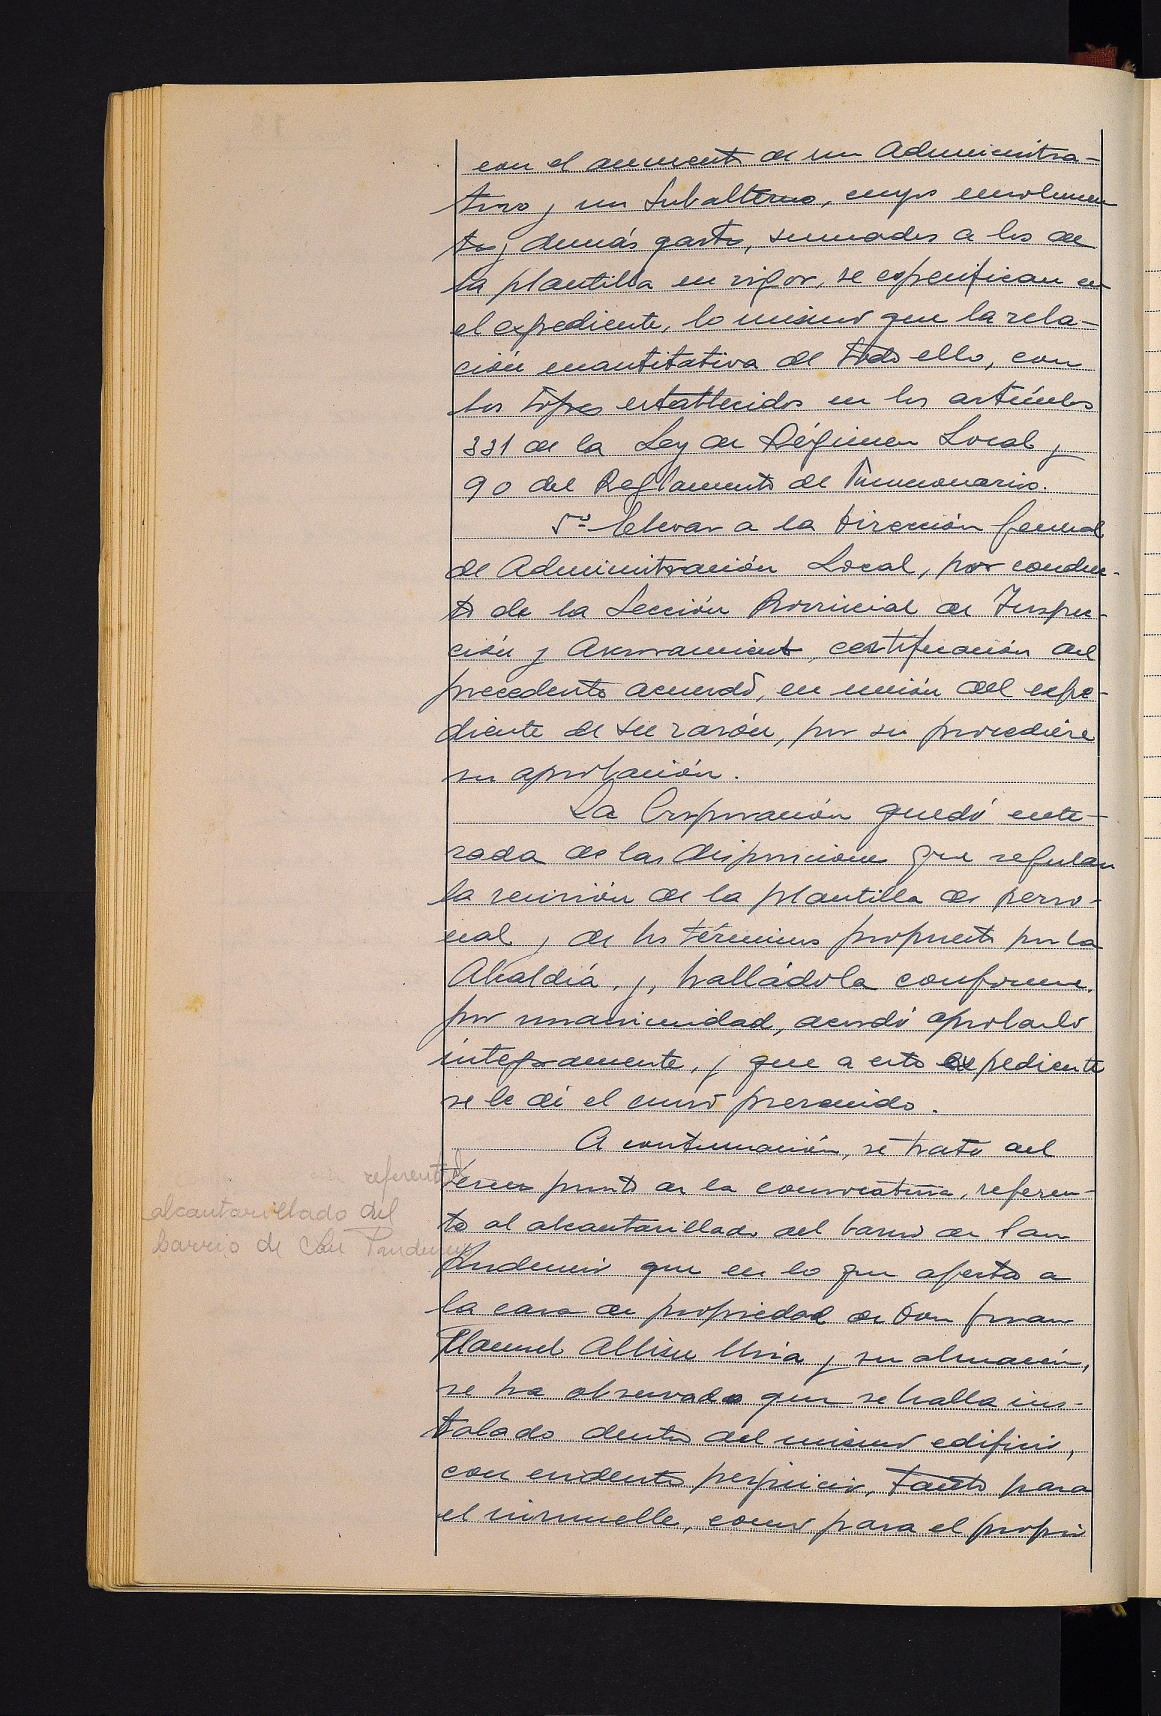 con el aumento de un Administra-
tivo y un Subalterno, cuyos emolumen
tos y demás gastos, sumados a los de
la plantilla en vigor, se especifican en
el expediente, lo mismo que la rela-
ción cuantitativa de todo ello, con
los topes establecidos en los artículos
331 de la Ley de Régimen Local y
90 del Reglamento de Funcionarios.
5º Elevar a la Dirección General
de Administración Local, por conduc-
to de la Sección Provincial de Inspec-
ción y Asesoramiento, certificación del
precedente acuerdo, en unión del expe-
diente de su razón, por si procediere
su aprobación.
La Corporación quedó ente-
rada de las disposiciones que regulan
la revisión de la plantilla de perso-
nal y de los términos propuestos por la
Alcaldía, y, hallándola conforme,
por unanimidad, acordó aprobarlo
íntegramente, y que a este expediente
se le dé el curso prevenido.
A continuación, se trató del
referente
tercer punto de la convocatoria, referen-
alcantarillado del
to al alcantarillado del barrio de San
barrio de San Prudencio
Prudencio que en lo que afecta a
la casa de propiedad de Don Juan
Manuel y su almacén,
se ha observado que se halla ins-
talado dentro del mismo edificio,
con evidente perjuicio, tanto para
el inmueble, como para el propio